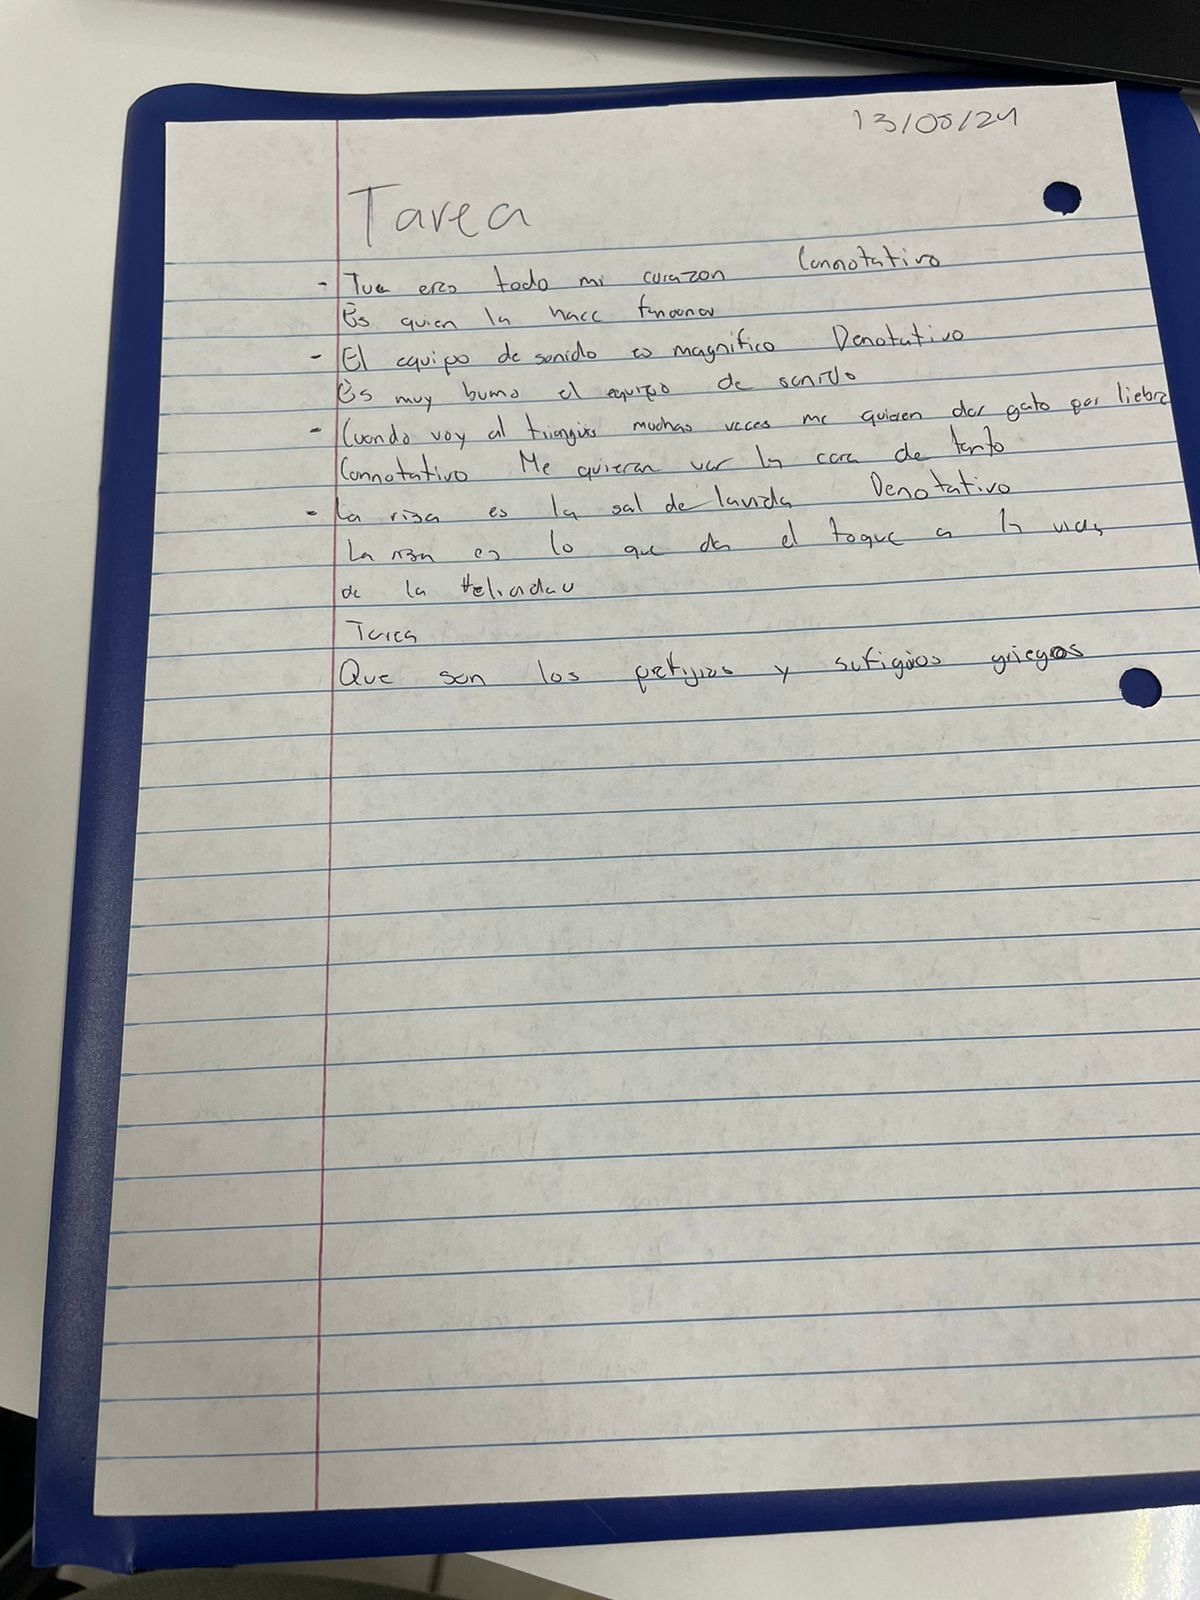 13/05/24
Tarea
- Tu eres todo mi corazon Connotativo
Es quien la hace
- El equipo de sonido es magnifico Denotativo
Es muy bueno el equipo de sonido
- Cuando voy al tianguis muchas veces me quieren dar gato por liebre
Connotativo Me quieran ver la cara de tonto
- La risa es la sal de la vida Denotativo
La risa es lo que da el toque a la vida
de la
Tarea
Que son los prefijos y sufigios griegos